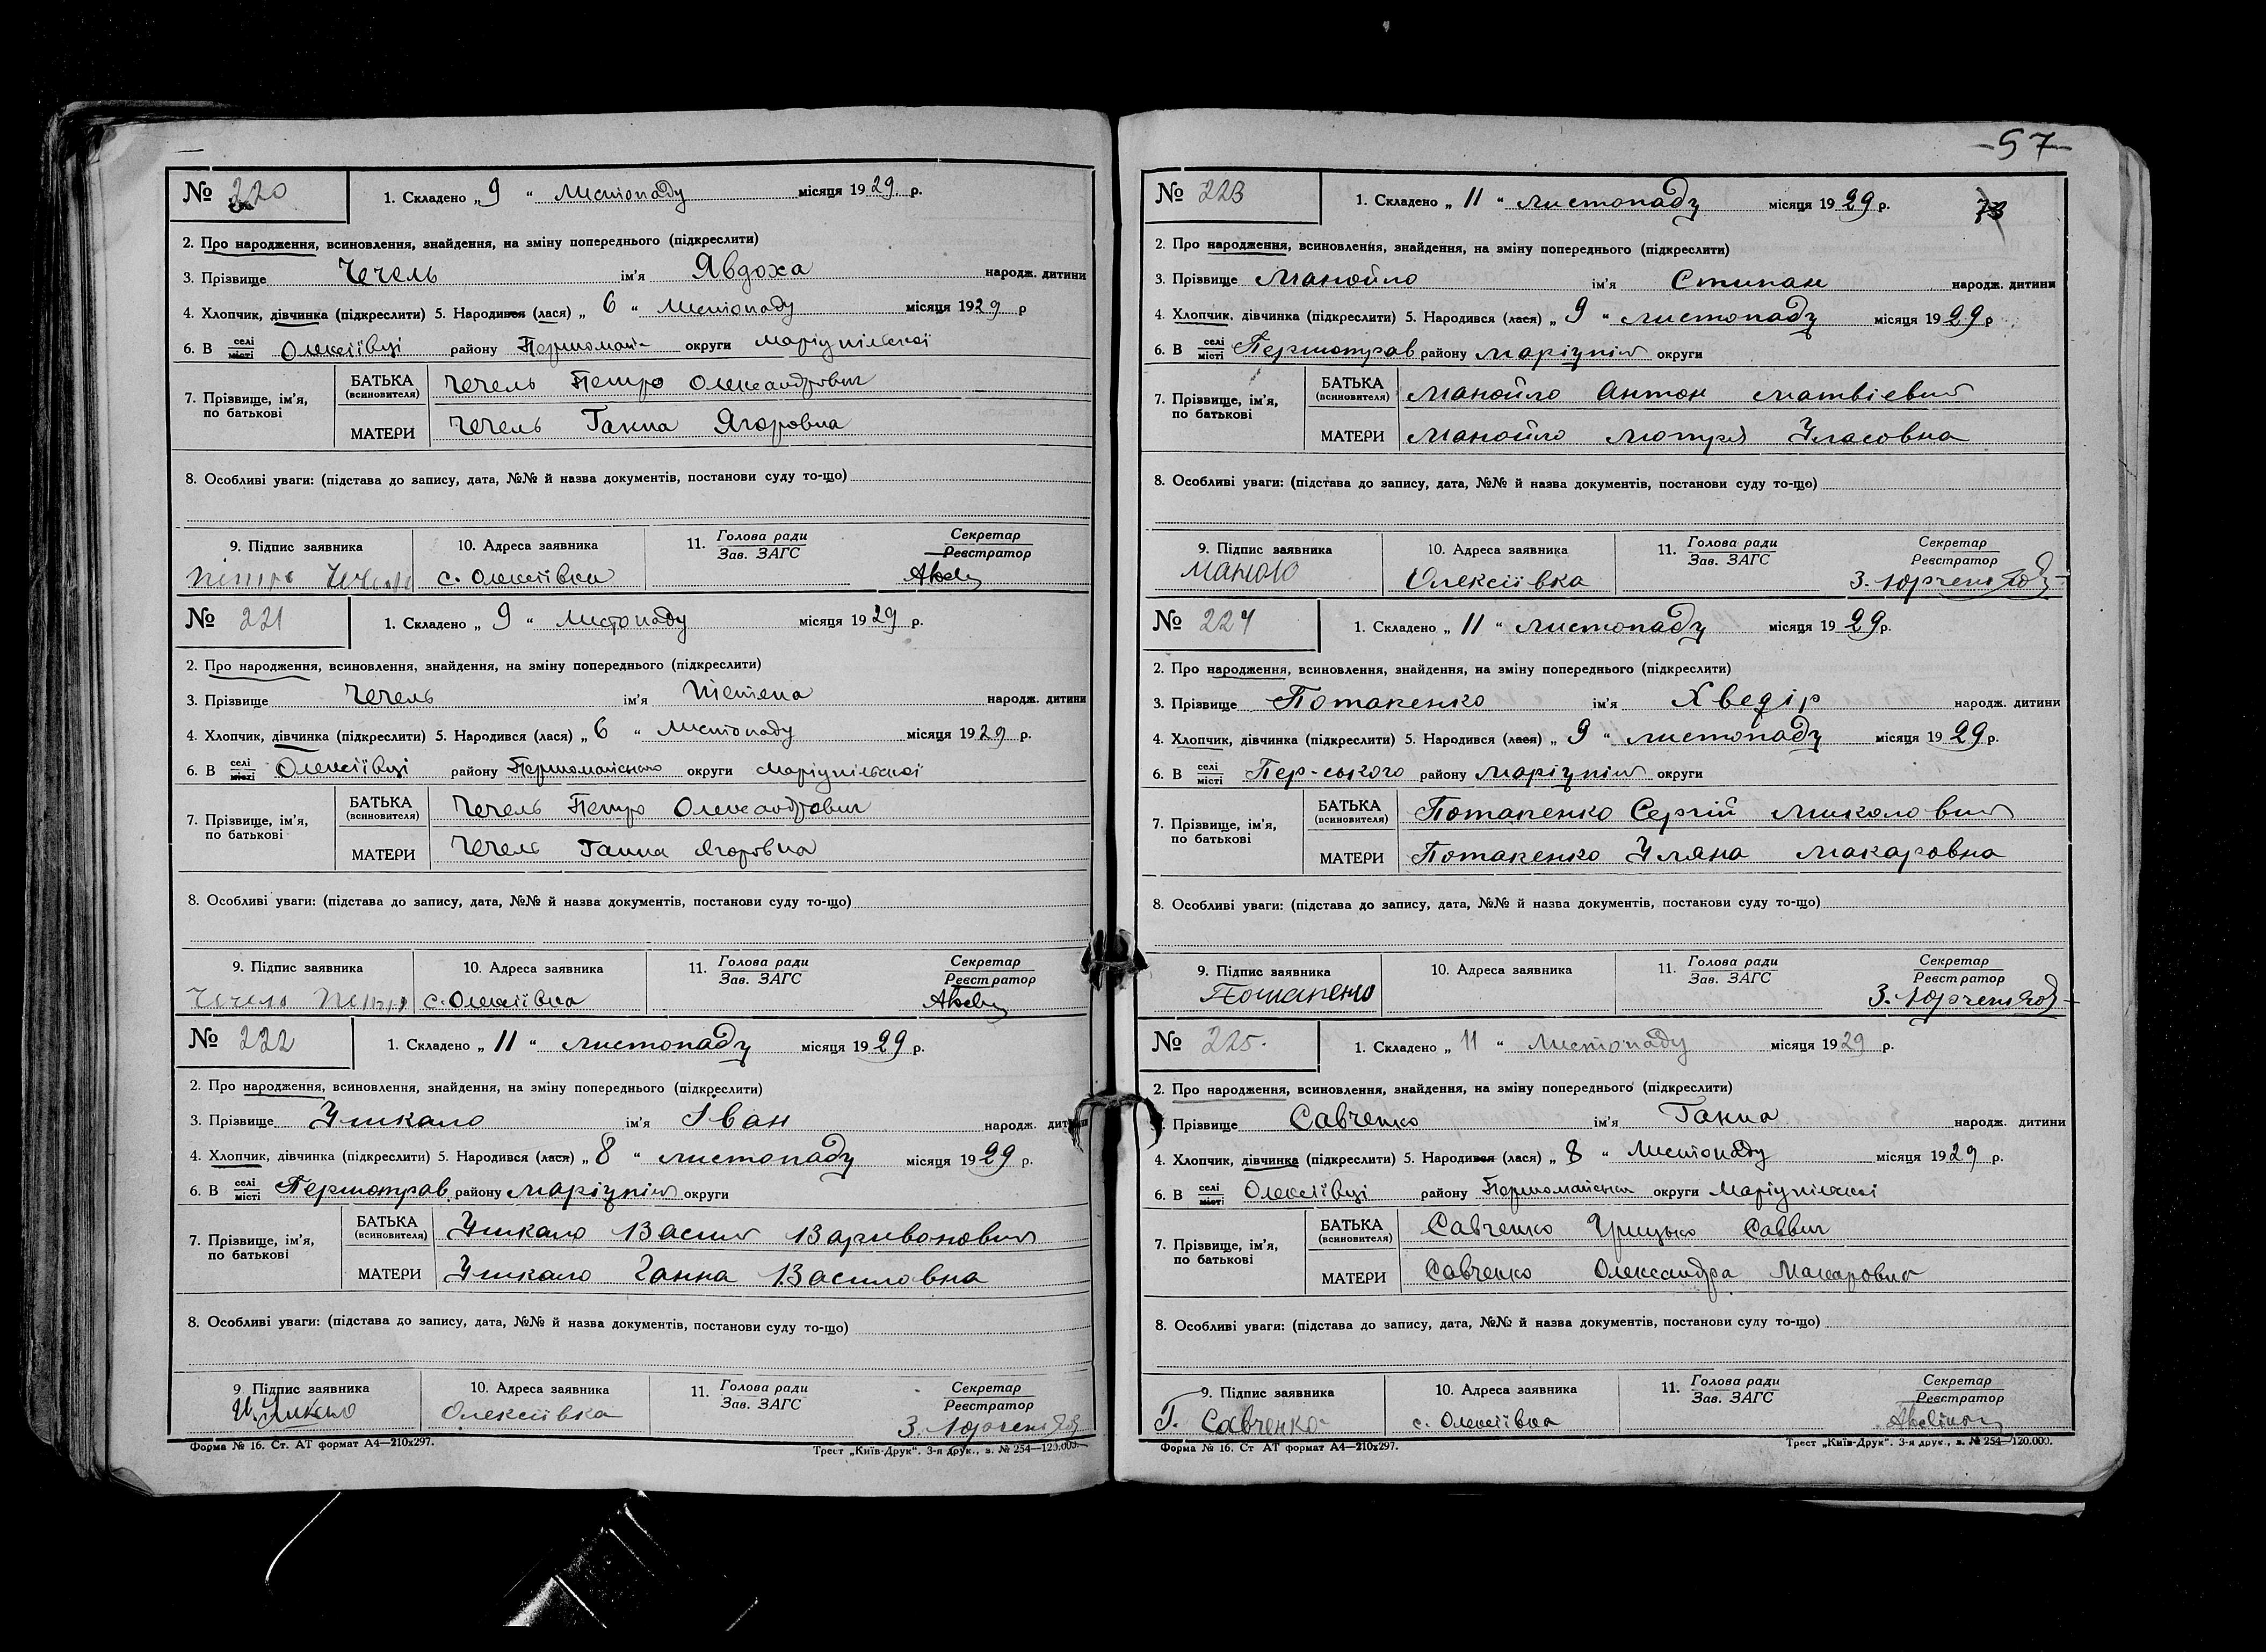 57
№ 220
1. Складено „ 9 “ Листопаду місяця 1929 р.
2. Про народження, всиновлення, знайдення, на зміну попереднього (підкреслити)
3. Прізвище Чечель ім'я Явдоха народж. дитини
4. Хлопчик, дівчинка (підкреслити) 5. Народився (лася) „ 6 “ Листопаду місяця 1929 р
6. В селі місті Олексіївці району Першомай- округи Маріупільської
7. Прізвище, ім'я, по батькові
БАТЬКА (всиновителя) Чечель Петро Олександрович
МАТЕРИ Чечель Ганна Ягоровна
8. Особливі уваги: (підстава до запису, дата, №№ й назва документів, постанови суду то-що)
9. Підпис заявника 10. Адреса заявника 11. Голова ради Зав. ЗАГС Секретар Реєстратор
Петро Чечель с. Олексіївка
№ 221
1. Складено „ 9 “ Листопаду місяця 1929 р.
2. Про народження, всиновлення, знайдення, на зміну попереднього (підкреслити)
3. Прізвище Чечель ім'я Тетена народж. дитини
4. Хлопчик, дівчинка (підкреслити) 5. Народився (лася) „ 6 “ Листопаду місяця 1929 р.
6. В селі місті Олексіївці району Першомайського округи Маріупільської
7. Прізвище, ім'я, по батькові
БАТЬКА (всиновителя) Чечель Петро Олександрович
МАТЕРИ Чечель Ганна Ягоровна
8. Особливі уваги: (підстава до запису, дата, №№ й назва документів, постанови суду то-що)
9. Підпис заявника 10. Адреса заявника 11. Голова ради Зав. ЗАГС Секретар Реєстратор
Чечель Петро с. Олексіївка
№ 222
1. Складено „ 11 “ листопаду місяця 1929 р.
2. Про народження, всиновлення, знайдення, на зміну попереднього (підкреслити)
3. Прізвище Умкало ім'я Іван народж. дитини
4. Хлопчик, дівчинка (підкреслити) 5. Народився (лася) „ 8 “ листопаду місяця 1929 р.
6. В селі місті Першотрав району Маріупіл округи
7. Прізвище, ім'я, по батькові
БАТЬКА (всиновителя) Умкало Васил Варивонович
МАТЕРИ Умкало Ганна Василовна
8. Особливі уваги: (підстава до запису, дата, №№ й назва документів, постанови суду то-що)
9. Підпис заявника 10. Адреса заявника 11. Голова ради Зав. ЗАГС Секретар Реєстратор
Олексіївка
Форма № 16. Ст. АТ формат А4—210х297. Трест „Київ-Друк“. 3-я друк., з. № 254—120.000.
№ 223
1. Складено „ 11 “ листопаду місяця 1929 р.
2. Про народження, всиновлення, знайдення, на зміну попереднього (підкреслити)
3. Прізвище Манойло ім'я Стипан народж. дитини
4. Хлопчик, дівчинка (підкреслити) 5. Народився (лася) „ 9 “ листопаду місяця 1929 р
6. В селі місті Першотрав району Маріупіл округи
7. Прізвище, ім'я, по батькові
БАТЬКА (всиновителя) Манойло Антон Матвієвич
МАТЕРИ Манойло Мотря Уласовна
8. Особливі уваги: (підстава до запису, дата, №№ й назва документів, постанови суду то-що)
9. Підпис заявника 10. Адреса заявника 11. Голова ради Зав. ЗАГС Секретар Реєстратор
Олексіївка
№ 224
1. Складено „ 11 “ листопаду місяця 1929 р.
2. Про народження, всиновлення, знайдення, на зміну попереднього (підкреслити)
3. Прізвище Потапенко ім'я Хведір народж. дитини
4. Хлопчик, дівчинка (підкреслити) 5. Народився (лася) „ 9 “ листопаду місяця 1929 р.
6. В селі місті Пер-ського району Маріупіл округи
7. Прізвище, ім'я, по батькові
БАТЬКА (всиновителя) Потапенко Сергій Миколович
МАТЕРИ Потапенко Уляна Макаровна
8. Особливі уваги: (підстава до запису, дата, №№ й назва документів, постанови суду то-що)
9. Підпис заявника 10. Адреса заявника 11. Голова ради Зав. ЗАГС Секретар Реєстратор
Потапенко
№ 225.
1. Складено „ 11 “ Листопаду місяця 1929 р.
2. Про народження, всиновлення, знайдення, на зміну попереднього (підкреслити)
3. Прізвище Савченко ім'я Ганна народж. дитини
4. Хлопчик, дівчинка (підкреслити) 5. Народився (лася) „ 8 “ Листопаду місяця 1929 р.
6. В селі місті Олексіївці району Першомайськ округи Маріупільскої
7. Прізвище, ім'я, по батькові
БАТЬКА (всиновителя) Савченко Грицько Саввич
МАТЕРИ Савченко Олександра Макаровна
8. Особливі уваги: (підстава до запису, дата, №№ й назва документів, постанови суду то-що)
9. Підпис заявника 10. Адреса заявника 11. Голова ради Зав. ЗАГС Секретар Реєстратор
Г. Савченко с. Олексіївка
Форма № 16. Ст АТ формат А4—210х297. Трест „Київ-Друк“. 3-я друк., з. № 254—120.000.